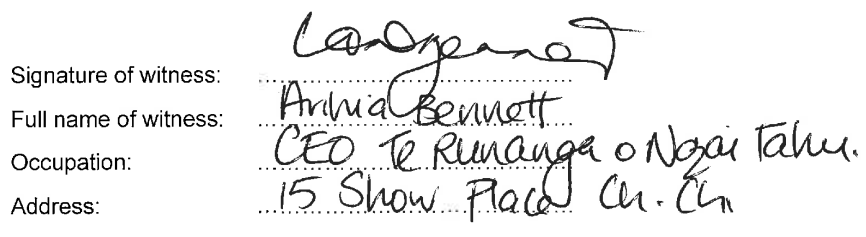 Signature of witness:
Full name of witness: Arihia Bennett
Occupation: CEO Te Runanga o Ngai Tahu.
Address: 15 Show Place Ch. Ch